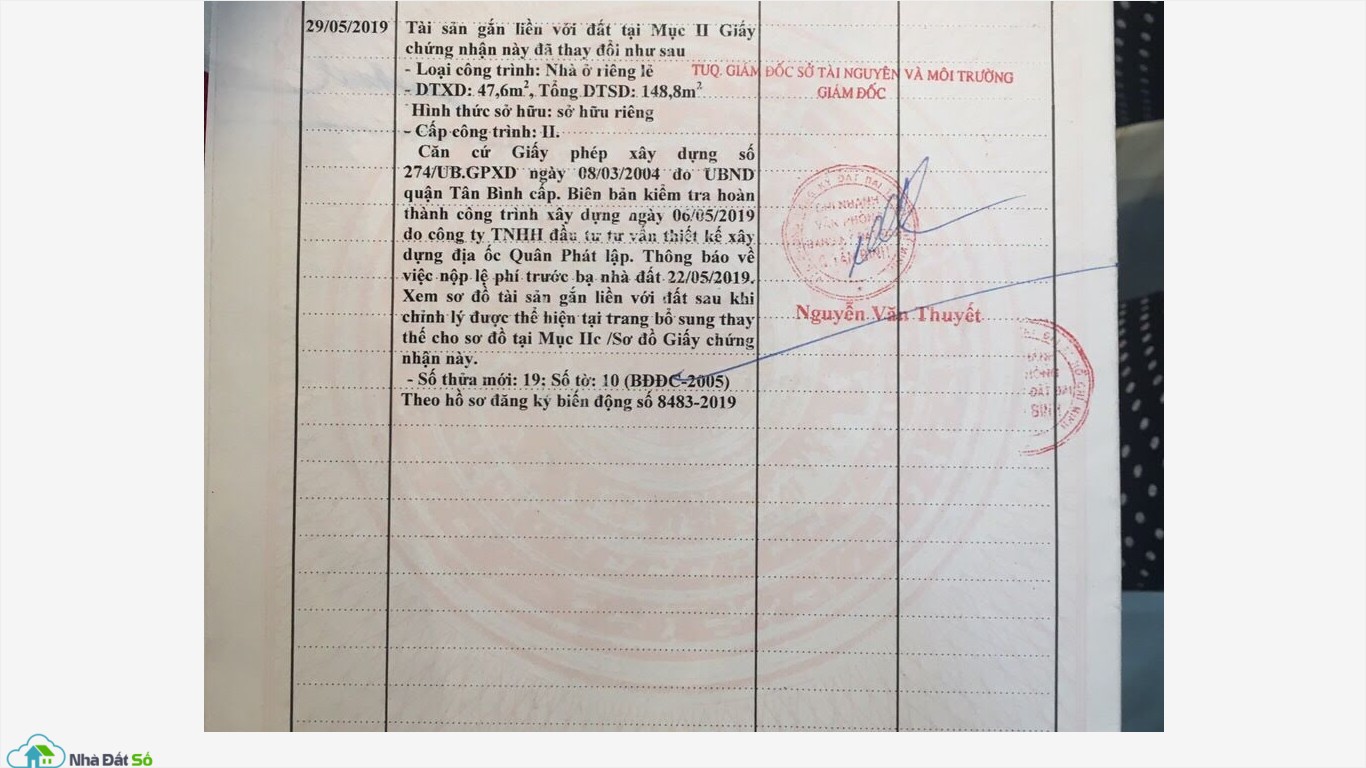 29/05/2019
Tài sản gắn liền với đất tại Mục II Giấy
chứng nhận này đã thay đổi như sau
- Loại công trình: Nhà ở riêng lẻ
- DTXD: 47,6m², Tổng DTSD: 148,8m²
Hình thức sở hữu: sở hữu riêng
- Cấp công trình: II.
Căn cứ Giấy phép xây dựng số
274/UB.GPXD ngày 08/03/2004 do UBND
quận Tân Bình cấp. Biên bản kiểm tra hoàn
thành công trình xây dựng ngày 06/05/2019
do công ty TNHH đầu tư tư vấn thiết kế xây
dựng địa ốc Quân Phát lập. Thông báo về
việc nộp lệ phí trước bạ nhà đất 22/05/2019.
Xem sơ đồ tài sản gắn liền với đất sau khi
chỉnh lý được thể hiện tại trang bổ sung thay
thế cho sơ đồ tại Mục IIc /Sơ đồ Giấy chứng
nhận này.
- Số thửa mới: 19: Số tờ: 10 (BĐĐC-2005)
Theo hồ sơ đăng ký biến động số 8483-2019
TUQ. GIÁM ĐỐC SỞ TÀI NGUYÊN VÀ MÔI TRƯỜNG
GIÁM ĐỐC
Nguyễn Văn Thuyết
Nhà Đất Số